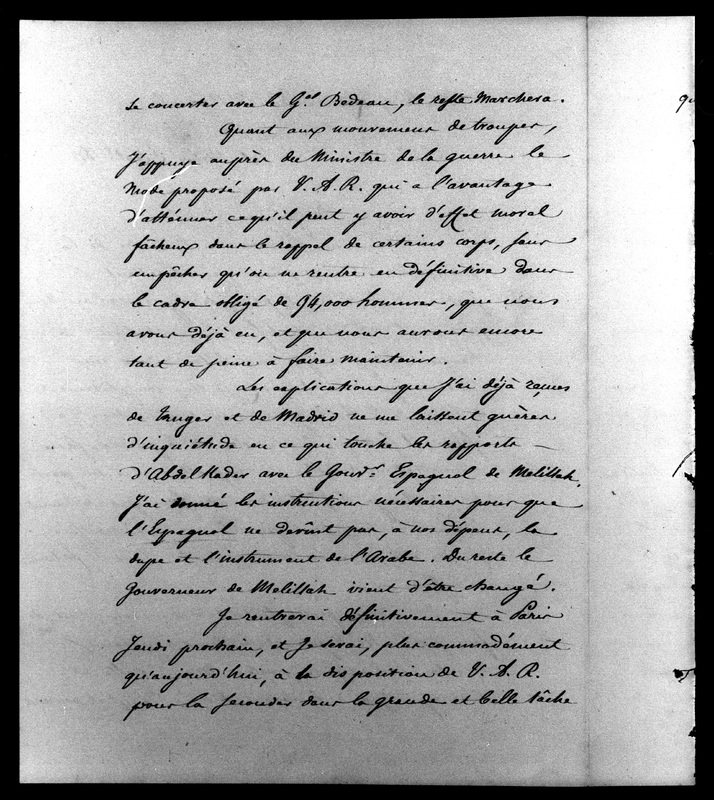 se concerter avec le G.al Bedeau, le reste marchera.
Quant aux mouvemens de troupes,
J'appuye auprès du Ministre de la guerre le
mode proposé par V. A. R. qui a l'avantage
d'atténuer ce qu'il peut y avoir d'effet moral
fâcheux dans le rappel de certains corps, sans
empêcher qu'on ne rentre en définitive dans
le cadre obligé de 94,000 hommes, que nous
avons déjà eu, et que nous aurons encore
tant de peine à faire maintenir.
Les explications que J'ai déjà reçues
de Tanger et de Madrid ne me laissent guères
d'inquiétude en ce qui touche les rapports
d'Abdel Kader avec le Gouv.r Espagnol de Melillah.
J'ai donné les instructions nécessaires pour que
l'Espagnol ne devînt pas, à nos dépens, la
dupe et l'instrument de l'Arabe. Du reste le
Gouverneur de Melillah vient d'être changé.
Je rentrerai définitivement à Paris
Jeudi prochain, et Je serai, plus commodément
qu'aujourd'hui, à la disposition de V. A. R.
pour la seconder dans la grande et belle tâche